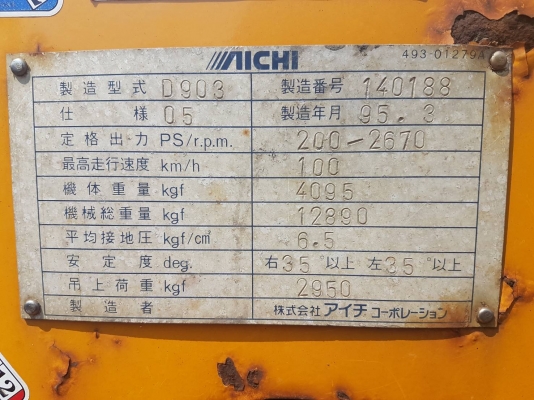 AICHI
493-01279A
製造型式 D903 製造番号 140188
仕様 05 製造年月 95.3
定格出力 PS/r.p.m. 200-2670
最高走行速度 km/h 100
機体重量 kgf 4095
機械総重量 kgf 12890
平均接地圧 kgf/cm² 6.5
安定度 deg. 右35°以上 左35°以上
吊上荷重 kgf 2950
製造者 株式会社アイチコーポレーション
12